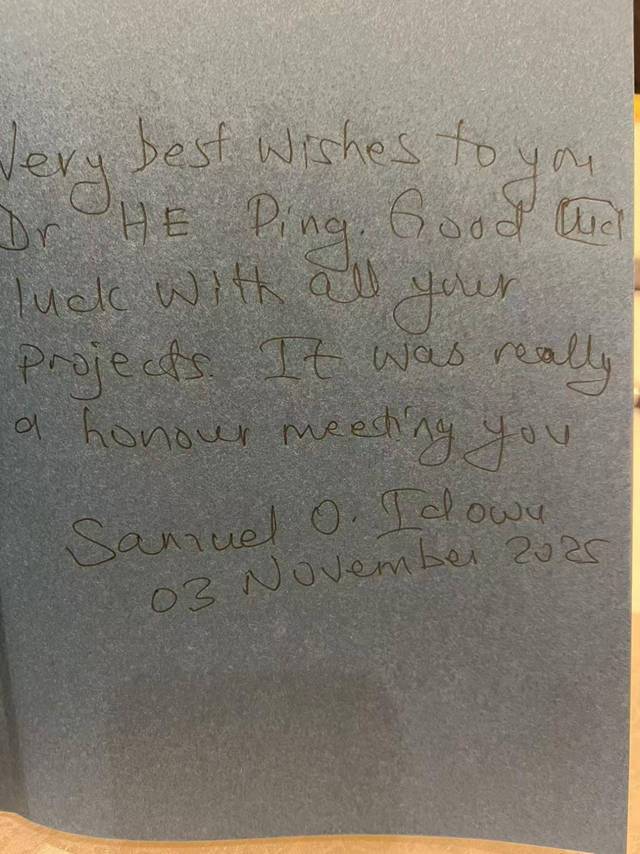 Very best wishes to you
Dr HE Ping. Good
luck with all your
projects. It was really
a honour meeting you
Samuel O. Idowu
03 November 2025